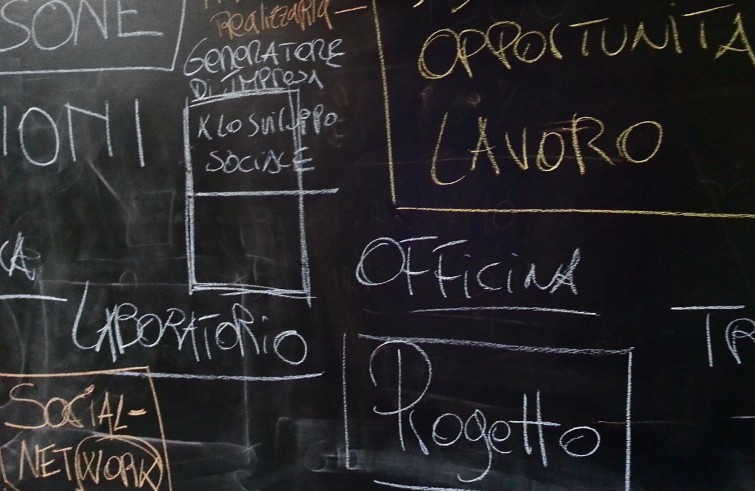 SONE
IONI
CA
LABORATORIO
SOCIAL-
NETWORK
Realizzaria—
GENERATORE
DI IMPRESA
X LO SVILUPPO
SOCIALE
OPPORTUNITA
LAVORO
OFFICINA
Progetto